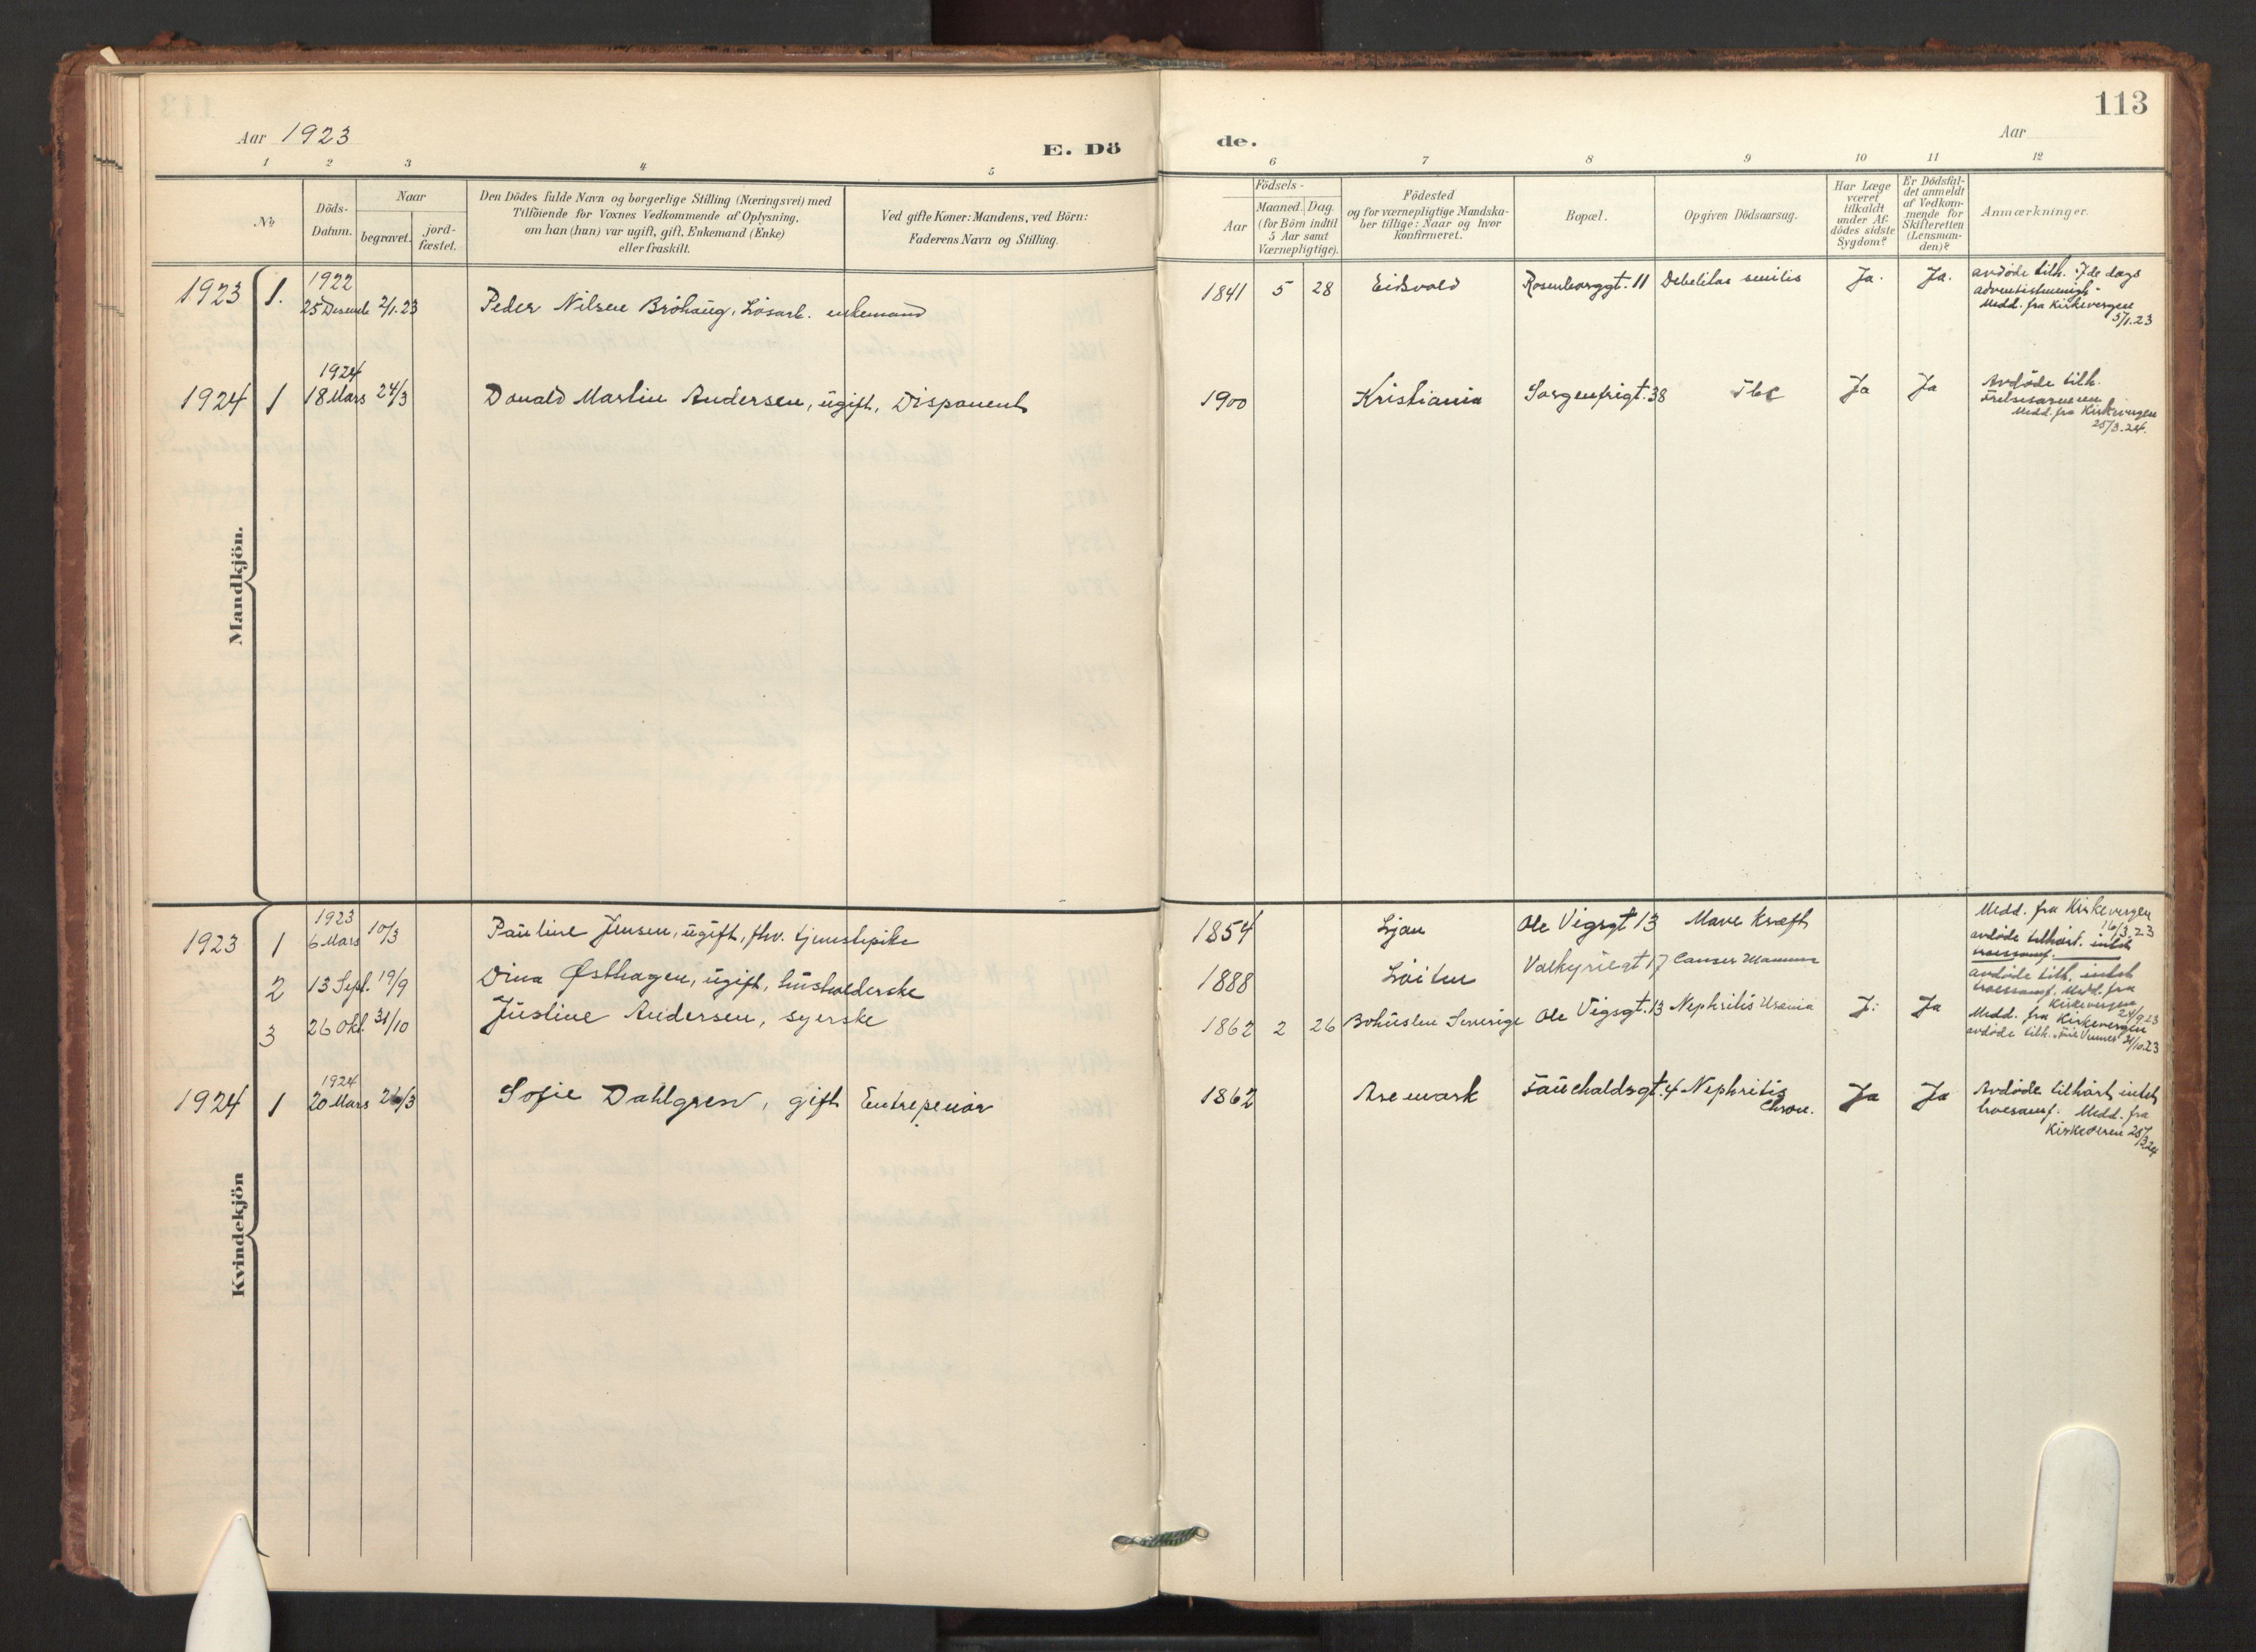 113
Aar 1923
E. Dö
de.
Aar
1 2 3 4 5 6 7 8 9 10 11 12
No
Döds-
Datum.
Naar
begravet.
jord-
fæstet.
Den Dödes fulde Navn og borgerlige Stilling (Næringsvei) med
Tilföiende for Voxnes Vedkommende af Oplysning,
om han (hun) var ugift, gift, Enkemand (Enke)
eller fraskilt.
Ved gifte Koner: Mandens, ved Börn:
Faderens Navn og Stilling.
Födsels-
Aar
Maaned. Dag.
(for Börn indtil
5 Aar samt
Værnepligtige).
Födested
og for værnepligtige Mandska-
ber tillige: Naar og hvor
konfirmeret.
Bopæl.
Opgiven Dödsaarsag.
Har Læge
været
tilkaldt
under Af-
dödes sidste
Sygdom?
Er Dödsfal-
det anmeldt
af Vedkom-
mende for
Skifteretten
(Lensman-
den)?
Anmærkninger.
Mandkjön.
1922
1923 1. 25 Desemb 2/1.23 Peder Nilsen Bröhaug, Lösarb. enkemand 1841 5 28 Eidsvold Rosenborggt. 11 Debelitas senilis Ja. Ja.
avdöde tilh. 7de dags
adventistmenigh.
Medd. fra Kirkevergen
5/1.23
1924
1924 1 18 Mars 24/3 Donald Martin Andersen, ugift, Disponent 1900 Kristiania Sorgenfrigt. 38 Tbc Ja Ja
Avdöde tilh.
Frelsesarmeen
Medd. fra Kirkevergen
25/3.24.
Kvindekjön
1923
1923 1 6 Mars 10/3 Pauline Jensen, ugift, fhv. tjenstepike 1854 Ljan Ole Vigsgt 13 Mave kræft
Medd. fra Kirkevergen
16/3.23
avdöde tilhört. intet
troessamf.
2 13 Sept. 19/9 Dina Østhagen, ugift, husholderske 1888 Löiten Valkyriegt 17 Canser Mamma
avdöde tilh. intet
troessamf. Medd. fra
Kirkevergen
24/9 23
3 26 Okt. 31/10 Justine Andersen, syerske 1862 2 26 Bohuslen Sverrige Ole Vigsgt. 13 Nephritis Uremia J: Ja
Medd. fra Kirkevergen
avdöde tilh. 31/10.23
1924
1924 1 20 Mars 26/3 Sofie Dahlgren, gift Entrepenör 1862 Aremark Fauchaldsgt. 4 Nephritis
Chron. Ja Ja
Avdöde tilhört intet
troesamf. Medd. fra
25/3 24